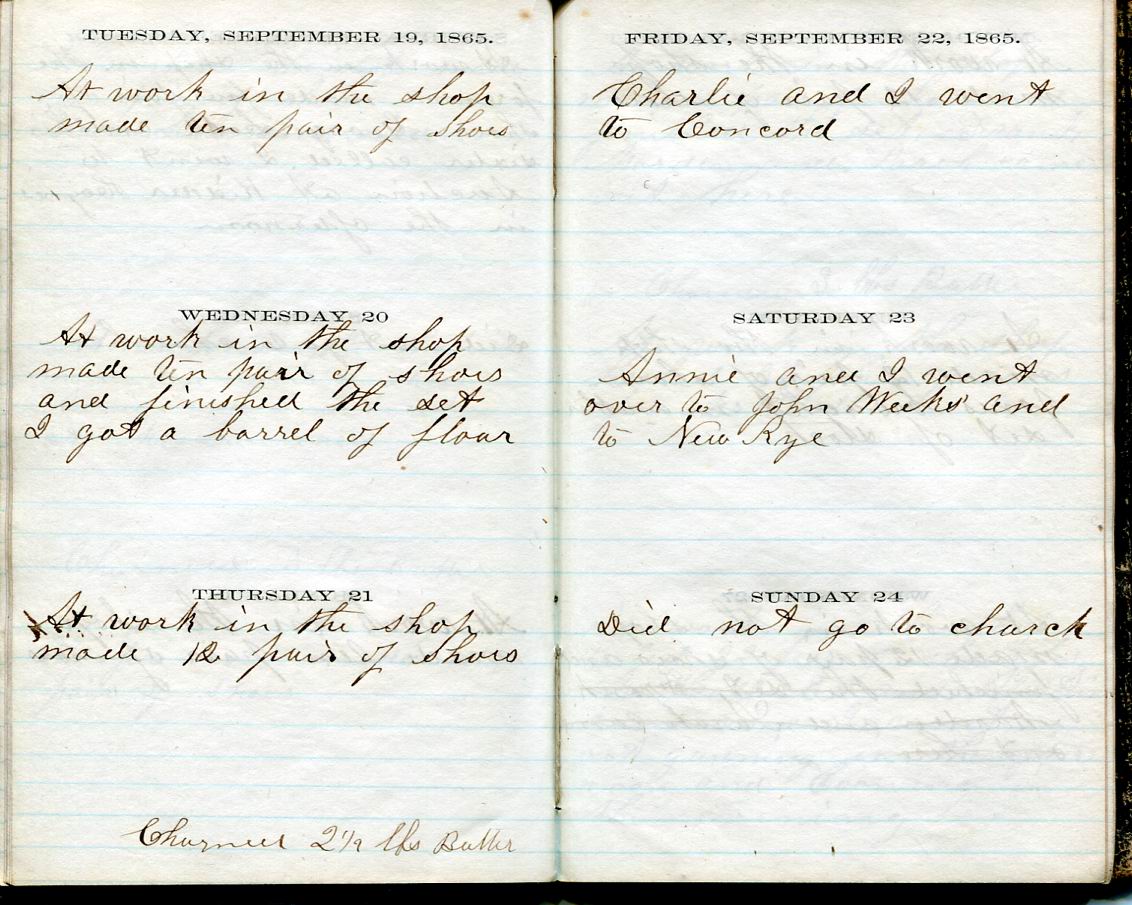 TUESDAY, SEPTEMBER 19, 1865.
At work in the shop
made ten pair of shoes
WEDNESDAY 20
At work in the shop
made ten pair of shoes
and finished the set
I got a barrel of flour
THURSDAY 21
At work in the shop
made 12 pair of shoes
Churned 2 1/2 lbs Butter
FRIDAY, SEPTEMBER 22, 1865.
Charlie and I went
to Concord
SATURDAY 23
Annie and I went
over to John Weeks' and
to New Rye
SUNDAY 24
Did not go to church